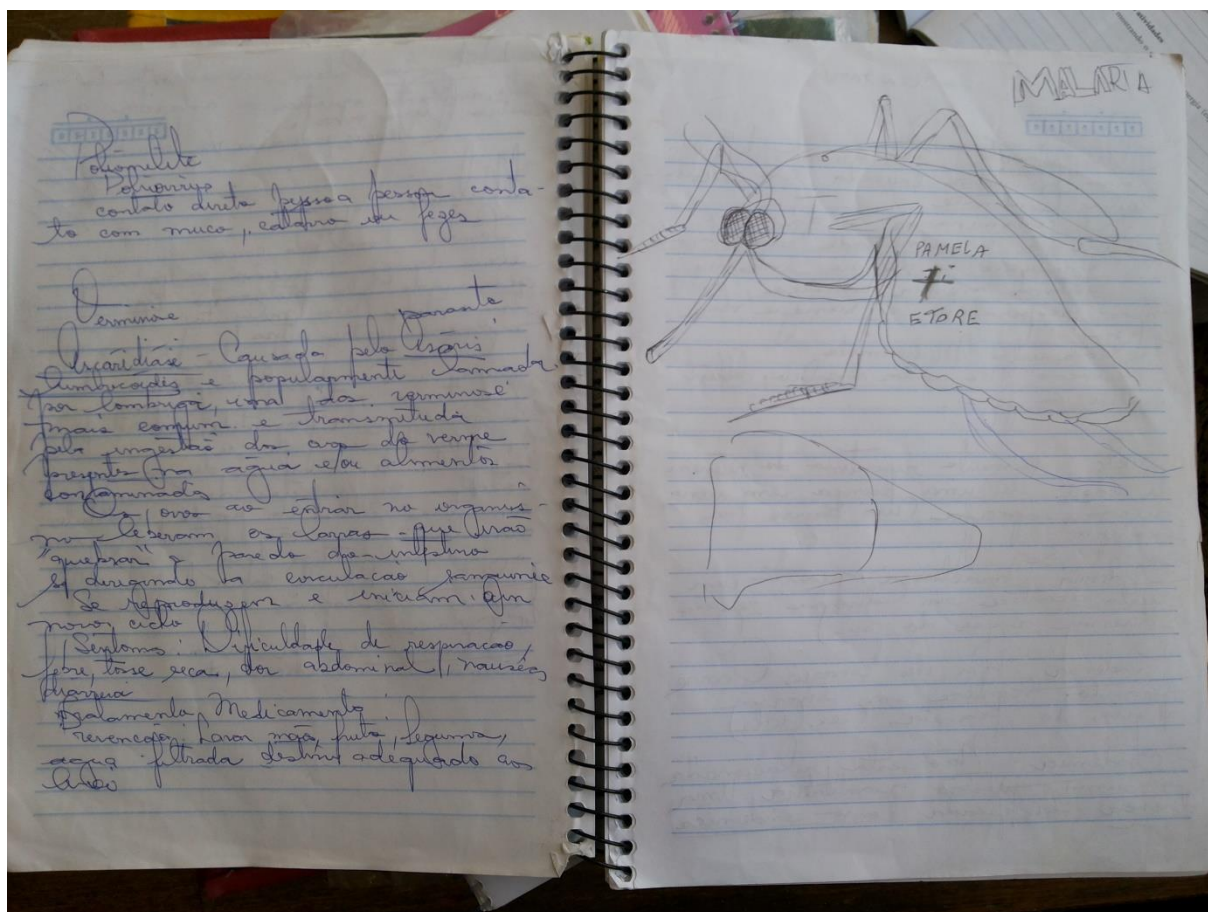 Poliomielite
Poliovirus
contato direto pessoa pessoa conta-
to com muco, catarro ou fezes
Verminose parasita
Ascaridíase - Causada pelo
e popularmente
por lombriga, uma das verminose
mais comum e transmitida
pela ingestão dos ovos do verme
presentes na água e/ou alimentos
contaminados
Os ovos ao entrar no organis-
mo liberam as larvas que irão
a parede do intestino
se dirigindo a circulação
Se reproduzem e iniciam um
novo ciclo
Sintoma: Dificuldade de respiração,
febre, tosse seca, dor abdominal, nausea,
diarreia
Medicamento
Lavar mão, fruta, legumes,
agua filtrada destino adequado aos
MALARIA
PAMELA
ETORE
atividades
mostrando o